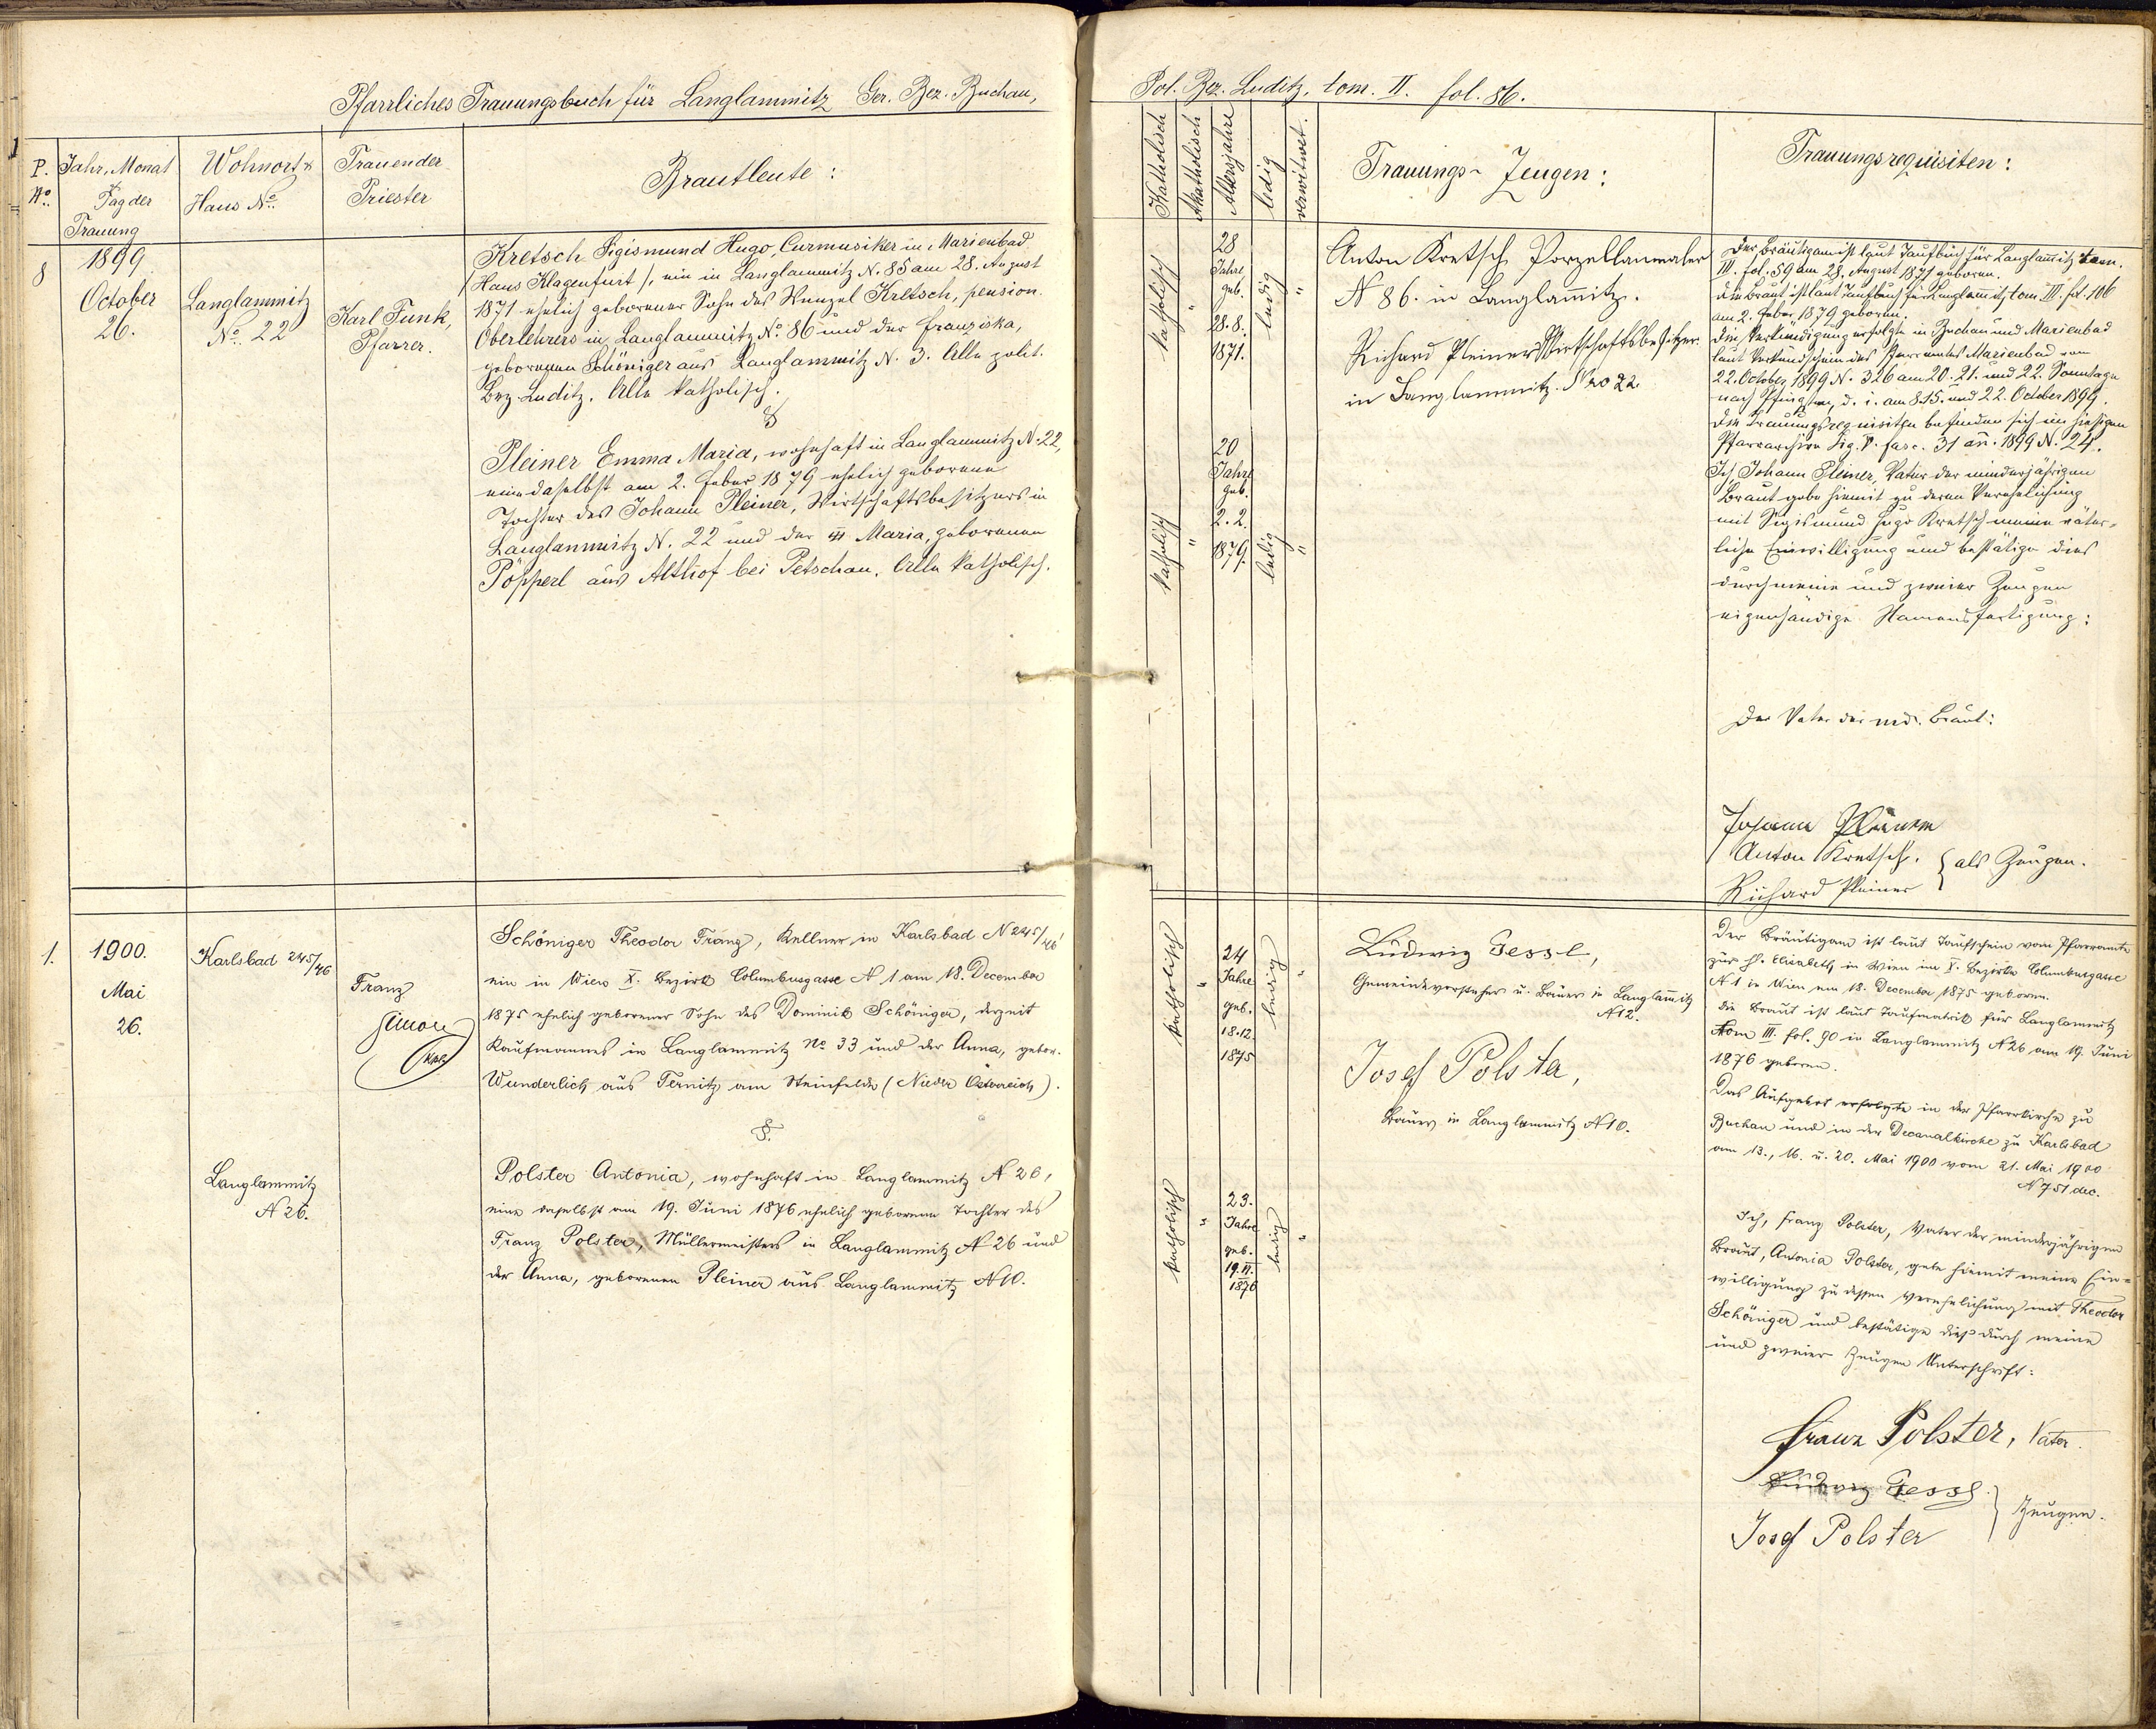 Pfarrliches Trauungsbuch für Langlammitz Ger. Bez. Buchau,
P. No.
Jahr, Monat & Tag der Trauung
Wohnort & Haus No.
Trauender Priester
Brautleute:
8
1899
October
26.
Langlammitz
No. 22
Karl Funk,
Pfarrer.
Kretsch Sigismund Hugo, Curmusiker in Marienbad
(Haus Klagenfurt), ein in Langlammitz N. 85 am 28. August
1871 ehelich geborener Sohn des Wenzel Kretsch, pension.
Oberlehrers in Langlammitz No. 86 und der Franziska,
geborenen Schöniger aus Langlammitz N. 3. Alle polit.
Bez. Luditz. Alle katholisch.
&
Pleiner Emma Maria, wohnhaft in Langlammitz N. 22,
eine daselbst am 2. Feber 1879 ehelich geborene
Tochter des Johann Pleiner, Wirtschaftsbesitzers in
Langlammitz N. 22 und der Maria, geborenen
Pöpperl aus Althof bei Petschau. Alle katholisch.
1.
1900.
Mai
26.
Karlsbad 245/46
Franz
Simon
Schöniger Theodor Franz, Kellner in Karlsbad N 245/46
ein in Wien X. Bezirk Columbusgasse N 1 am 18. December
1875 ehelich geborener Sohn des Dominik Schöniger, derzeit
Kaufmannes in Langlammitz No 33 und der Anna, gebor.
Wunderlich aus Ternitz am Steinfelde (Nieder Östereich).
&.
Langlammitz
N 26.
Polster Antonia, wohnhaft in Langlammitz N 26,
eine daselbst am 19. Juni 1876 ehelich geborene Tochter des
Franz Polster, Müllermeisters in Langlammitz N 26 und
der Anna, geborenen Pleiner aus Langlammitz N 10.
Pol. Bez. Luditz, tom. II. fol. 86.
Katholisch
Akatholisch
Altersjahre
ledig
verwitwet.
Trauungs-Zeugen:
Trauungsrequisiten:
katholisch
"
28
Jahre
geb.
28. 8.
1871.
ledig
"
Anton Kretsch Porzellanmaler
N 86. in Langlam̅itz.
Richard Pleiner Wirtschaftsbesitzer
in Langlammitz. Nro 22
katholisch
"
20
Jahre
geb.
2. 2.
1879.
ledig
"
Der Bräutigam ist laut Taufbuch für Langlam̅itz tom.
III. fol. 59 am 28. August 1871 geboren.
Die Braut ist laut Taufbuch für Langlam̅itz tom III. fol. 106
am 2. Feber 1879 geboren.
Die Verkündigung erfolgte in Buchau und Marienbad
laut Verkündschein des Pfarramtes Marienbad vom
22. October 1899 N. 326 am 20. 21. und 22. Sonntage
nach Pfingsten, d. i. am 8. 15. und 22. October 1899.
Die Trauungsrequisiten befinden sich im hiesigen
Pfarrarchive Sig. V. fasc. 31 an̅. 1899 N. 24.
Ich, Johann Pleiner, Vater der minderjährigen
Braut gebe hiemit zu deren Verehelichung
mit Sigismund Hugo Kretsch meine väter-
liche Einwilligung und bestätige dies
durch meine und zweier Zeugen
eigenhändige Namensfertigung:
Der Vater der mdj. Braut:
Johann Pleiner
Anton Kretsch.
Richard Pleiner
als Zeugen.
katholisch
"
24
Jahre
geb.
18. 12.
1875
ledig
"
Ludwig Gessl,
Gemeindevorsteher u. Bauer in Langlam̅itz
N 12.
Josef Polster,
Bauer in Langlammitz N 10.
katholisch
"
23.
Jahre
geb.
19. VI.
1876
ledig
"
Der Bräutigam ist laut Taufschein vom Pfarramte
zur hl. Elisabeth in Wien im X. Bezirke Columbusgasse
N 1 in Wien am 18. December 1875 geboren.
Die Braut ist laut Taufmatrik für Langlammitz
tom III. fol. 90 in Langlammitz N 26 am 19. Juni
1876 geboren.
Das Aufgebot erfolgte in der Pfarrkirche zu
Buchau und in der Decanalkirche zu Karlsbad
am 13., 16. u. 20. Mai 1900 vom 21. Mai 1900
N 751 dec.
Ich, Franz Polster, Vater der minderjährigen
Braut, Antonia Polster, gebe hiemit meine Ein-
willigung zu dessen Verehelichung mit Theodor
Schöniger und bestätige dieß durch meine
und zweier Zeugen Unterschrift:
Franz Polster, Vater.
Ludwig Gessl
Josef Polster
Zeugen.